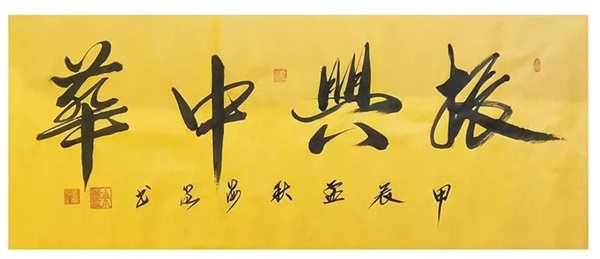 振興中華
甲辰孟秋书